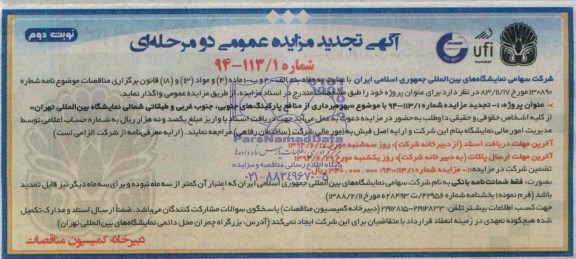 نوبت دوم
آگهی تجدید مزایده عمومی دو مرحله‌ای
شماره ۹۴-۱۱۳/۱
ufi
member
شرکت سهامی نمایشگاه‌های بین‌المللی جمهوری اسلامی ایران با عنایت به مفاد بند الف ماده (۴) و مواد (۱۳) و (۱۸) قانون برگزاری مناقصات موضوع نامه شماره
۱۳۰۸۹۰ مورخ ۸۳/۱۱/۱۷ در نظر دارد برای عنوان پروژه خود را طبق مندرج در اسناد مزایده، از طریق مزایده عمومی واگذار نماید.
عنوان پروژه: ۱- تجدید مزایده شماره ۹۴-۱۱۳/۱ با موضوع «بهره‌برداری از منافع پارکینگ‌های جنوبی، جنوب غربی و طبقاتی شمالی نمایشگاه بین‌المللی تهران»
از کلیه اشخاص حقوقی و حقیقی داوطلب به حضور در مزایده دعوت به عمل می‌آید جهت دریافت اسناد با واریز مبلغ یکصد و نه هزار ریال به شماره حساب اعلامی توسط
مدیریت امور مالی نمایشگاه بنام این شرکت و ارایه اصل فیش به امور مالی شرکت (ساختمان رفاهی) مراجعه نمایند. (ارایه معرفی‌نامه از شرکت الزامی است)
آخرین مهلت دریافت اسناد (از دبیرخانه شرکت): روز سه‌شنبه مورخ
آخرین مهلت ارسال پاکات (به دبیرخانه شرکت): روز یکشنبه مورخ
تضمین شرکت در مزایده: ۱- مزایده شماره ریال
بصورت: فقط ضمانت‌نامه بانکی به نام شرکت سهامی نمایشگاه‌های بین‌المللی جمهوری اسلامی ایران که اعتبار آن کمتر از سه ماه نبوده و برای سه ماه دیگر نیز قابل تمدید
باشد (فرم نمونه: بخشنامه شماره مورخ ۱۳۸۸/۲/۱۱)
جهت کسب اطلاعات بیشتر تلفن: ۲۱۹۱۲۸۳۳-۲۱۹۱۲۸۱۵ (دبیرخانه کمیسیون مناقصات) پاسخگوی سوالات مشارکت کنندگان می‌باشد. ضمناً ارسال اسناد و مدارک تکمیل
شده هیچگونه تعهدی در زمینه انعقاد قرارداد با متقاضیان برای این شرکت ایجاد نمی‌کند (آدرس: بزرگراه چمران محل دائمی نمایشگاه‌های بین‌المللی تهران)
دبیرخانه کمیسیون مناقصات
ParsNamadData
پایگاه اطلاع رسانی مناقصه و مزایده
۰۲۱-۸۸۳۴۹۶۷۰-۵